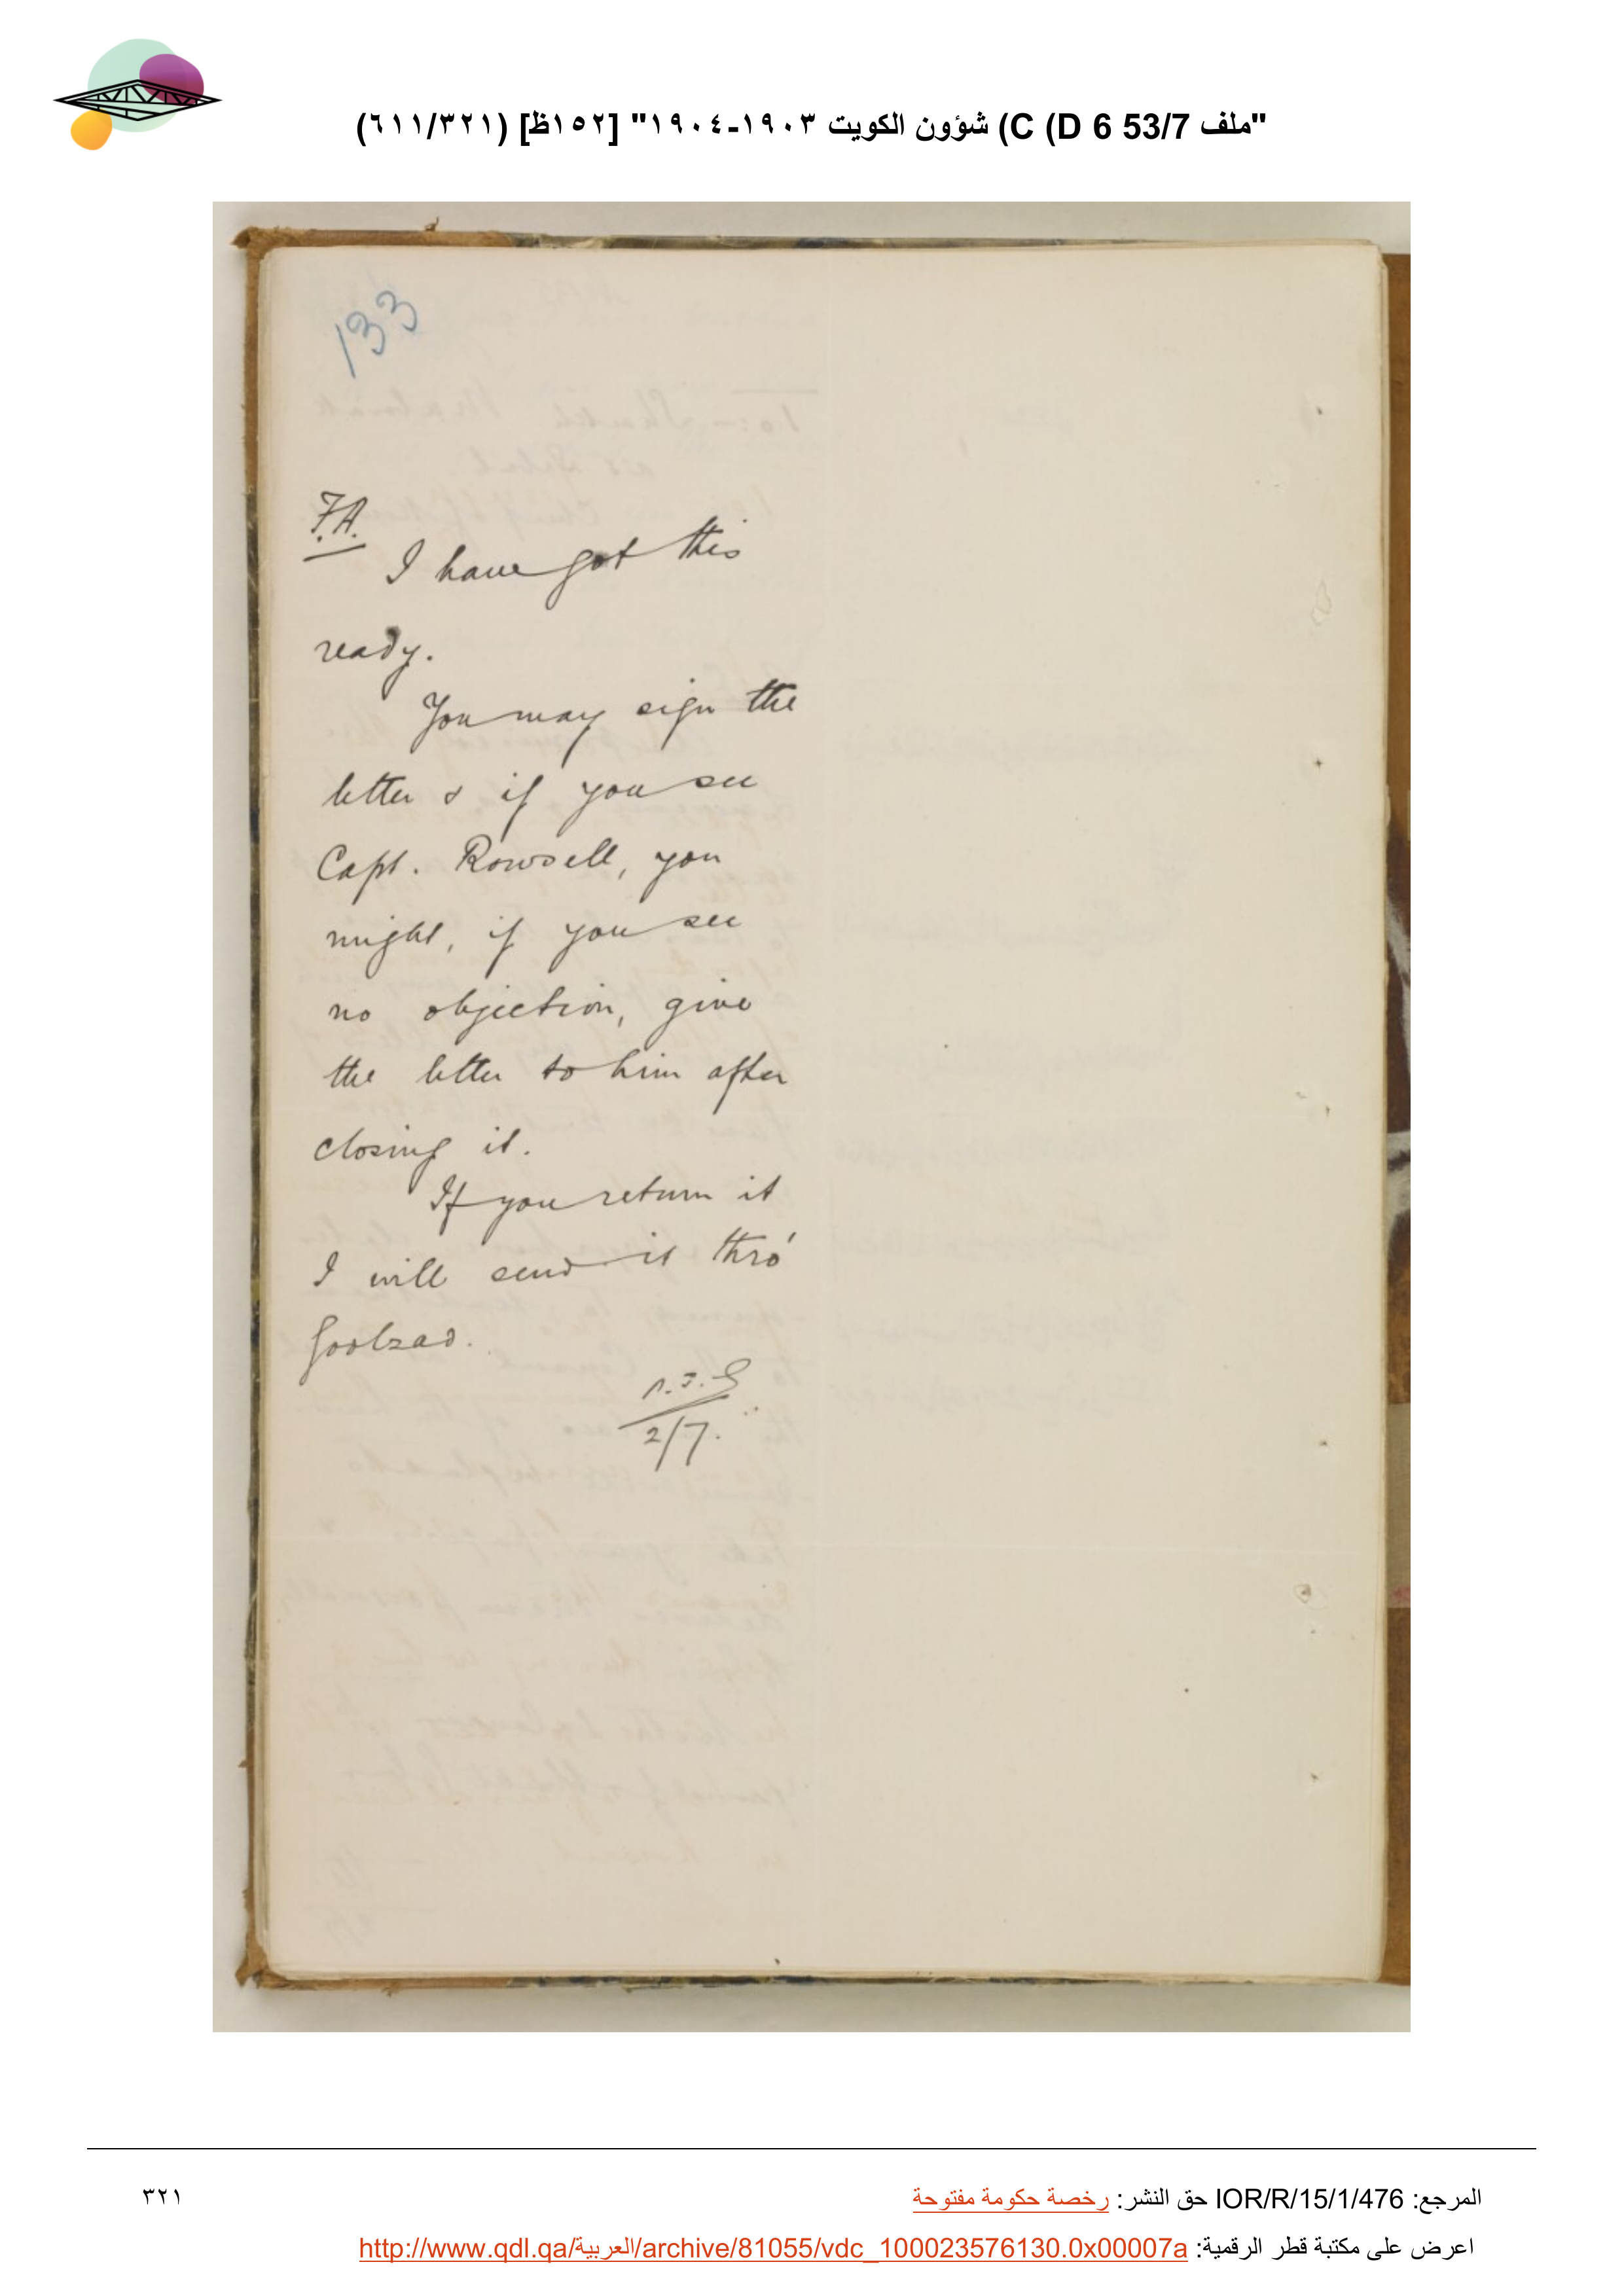 "ملف 53/7 C (D 6) شؤون الكويت ١٩٠٣-١٩٠٤" [١٥٢ظ] (٦١١/٣٢١)
133
F.A.
I have got this
ready.
You may sign the
letter & if you see
Capt. Rowsell, you
might, if you see
no objection, give
the letter to him after
closing it.
If you return it
I will send it thro'
Goolzad.
2/7.
المرجع: IOR/R/15/1/476 حق النشر: رخصة حكومة مفتوحة
٣٢١
اعرض على مكتبة قطر الرقمية: http://www.qdl.qa/العربية/archive/81055/vdc_100023576130.0x00007a